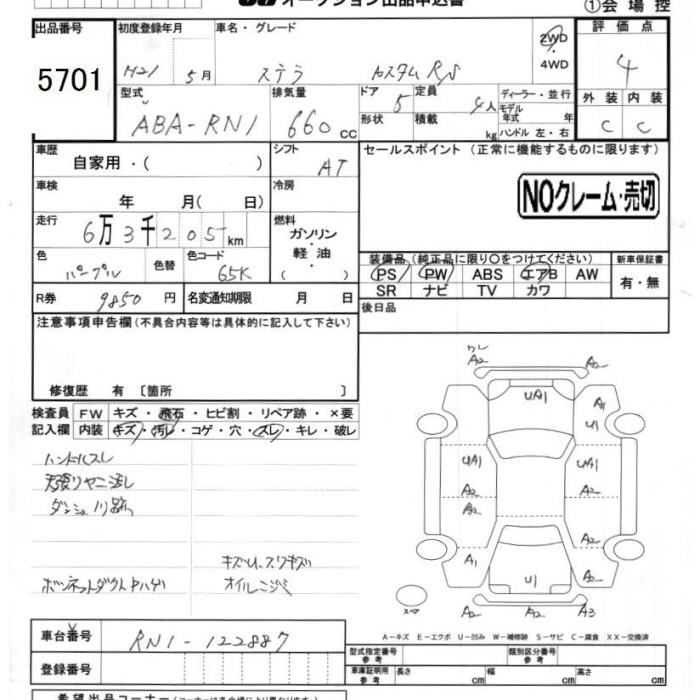 オークション出品申込書 ①会場控
出品番号 5701
初度登録年月 H21 5月
車名・グレード ステラ カスタムRS
2WD
・
4WD
評価点 4
外装 内装
C C
型式 ABA-RN1
排気量 660cc
ドア 5
形状
定員 4人
積載 kg
ディーラー・並行
モデル年式 年
ハンドル 左・右
車歴 自家用・( )
シフト AT
セールスポイント(正常に機能するものに限ります)
NOクレーム・売切
車検 年 月( 日)
冷房
走行 6万3千205km
燃料 ガソリン・軽油・( )
色 パープル
色替
色コード 65K
装備品(純正品に限り○をつけてください)
PS PW ABS エアB AW
SR ナビ TV カワ
新車保証書
有・無
R券 9850円
名変通知期限 月 日
後日品
注意事項申告欄(不具合内容等は具体的に記入して下さい)
修復歴 有〔箇所 〕
検査員記入欄
FW キズ・飛石・ヒビ割・リペア跡・×要
内装 キズ・汚レ・コゲ・穴・スレ・キレ・破レ
ハンドルスレ
天張りヤニ汚し
ダッシュ
キズU、スリキズ
ボンネットダクト
オイルニジミ
A2 A2
UA1
A1
U1
UA1 UA1
A2 A2
A2
A2
A1 A2
U1
スペア
A2 A2 A3
A-キズ E-エクボ U-凹み W-補修跡 S-サビ C-腐食 XX-交換済
車台番号 RN1-122887
登録番号
型式指定番号 参考
類別区分番号 参考
車庫証明用 参考 長さ cm 幅 cm 高さ cm
希望出品コーナー